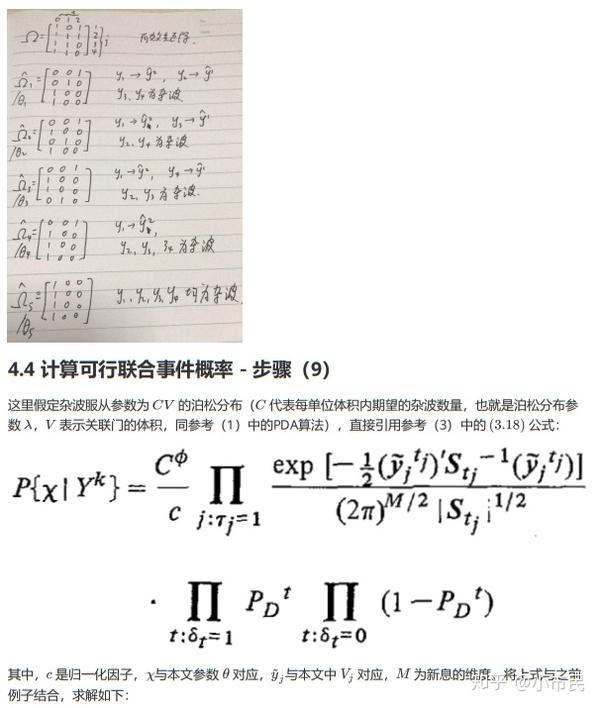 0 1 2
Ω = [1 0 1
1 1 1
1 1 0
1 1 0] 1 2 3 4 } j
Ω̂₁ = [0 0 1
/θ₁ 0 1 0
1 0 0
1 0 0]
y₁ → ŷ², y₂ → ŷ¹
y₃, y₄ 为杂波
Ω̂₂ = [0 0 1
/θ₂ 1 0 0
0 1 0
1 0 0]
y₁ → ŷ², y₃ → ŷ¹
y₂, y₄ 为杂波
Ω̂₃ = [0 0 1
/θ₃ 1 0 0
1 0 0
0 1 0]
y₁ → ŷ², y₄ → ŷ¹
y₂, y₃ 为杂波.
Ω̂₄ = [0 0 1
/θ₄ 1 0 0
1 0 0
1 0 0]
y₁ → ŷ²,
y₂, y₃, y₄ 为杂波
Ω̂₅ = [1 0 0
/θ₅ 1 0 0
1 0 0
1 0 0]
y₁, y₂, y₃, y₄ 均为杂波
4.4 计算可行联合事件概率 - 步骤（9）
这里假定杂波服从参数为 CV 的泊松分布（C 代表每单位体积内期望的杂波数量，也就是泊松分布参
数 λ，V 表示关联门的体积，同参考（1）中的PDA算法），直接引用参考（3）中的 (3.18) 公式：
P{χ|Yᵏ} = C^φ / c ∏_{j:τ_j=1} exp [−½(ỹ_j^{t_j})′S_{t_j}^{−1}(ỹ_j^{t_j})] / (2π)^{M/2} |S_{t_j}|^{1/2}
· ∏_{t:δ_t=1} P_D^t ∏_{t:δ_t=0} (1−P_D^t)
其中，c 是归一化因子，χ与本文参数 θ 对应，ỹ_j与本文中 V_j 对应，M 为新息的维度。将上式与之前
例子结合，求解如下：
知乎 @小市民